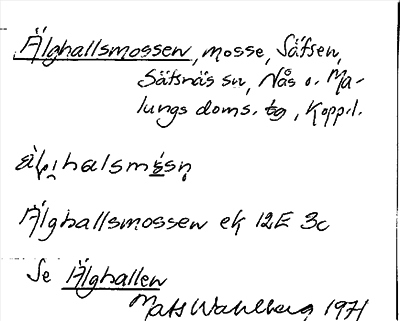 Älghallsmossen, mosse, Säfsen,
Säfsnäs sn, Nås o. Ma-
lungs doms. tg, Kopp. l.
Älghallsmossen ek 12E 3c
Se Älghallen
Mats Wahlberg 1971